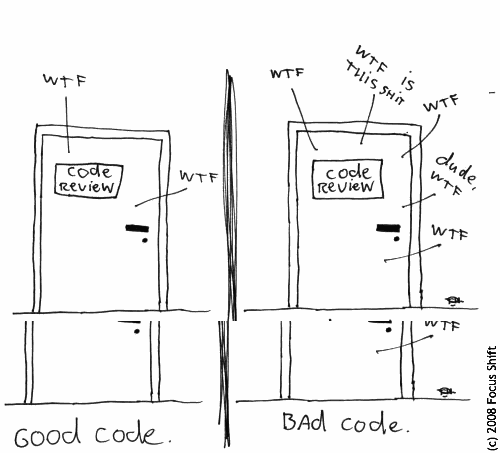 WTF
code
REVIEW
WTF
GOOD code.
WTF
WTF is
THIS SHIT
WTF
code
REVIEW
dude,
WTF
WTF
WTF
BAd code.
(c) 2008 Focus Shift